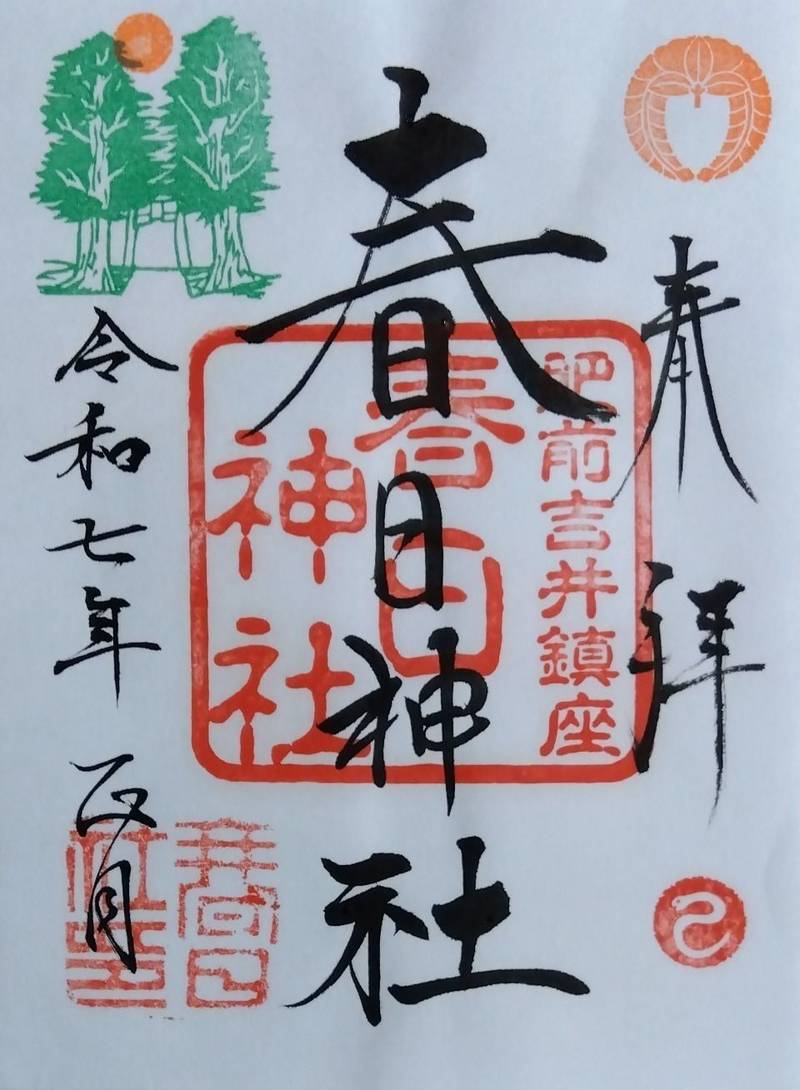 奉拝
肥前吉井鎮座
春日
神社
春日神社
令和七年 正月